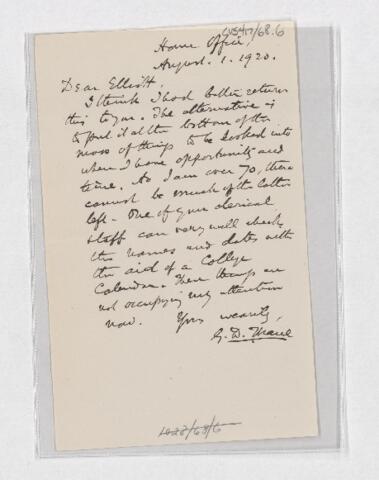 UVS4/7/68.6
Home Office,
August. 1. 1920.
Dear Elliott,
I think I had better return
this to you. The alternative is
to put it at the bottom of the
mass of things to be looked into
when I have opportunity and
time. As I am over 70, there
cannot be much of the latter
left. One of your clerical
staff can very well check
the names and dates with
the aid of a College
Calendar. These things are
not occupying my attention
now. Yours wearily,
G. D.
1028/68/6